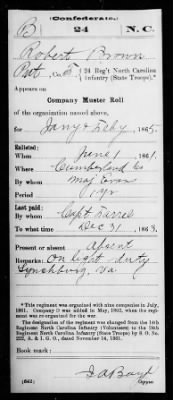 (Confederate.)
B 24 N.C.
Robert Brown
Pvt, Co. 24 Reg't North Carolina
Infantry (State Troops).*
Appears on
Company Muster Roll
of the organization named above,
for Jany & Feby, 1865.
Enlisted:
When June 1, 1861.
Where Cumberland Co
By whom Maj
Period 1 yr
Last paid:
By whom Capt
To what time Dec 31, 1863.
Present or absent Absent
Remarks: On light duty
Lynchburg, Va
*This regiment was organized with nine companies in July,
1861. Company D was added in May, 1862, when the regiment
was reorganized.
The designation of the regiment was changed from the 14th
Regiment North Carolina Infantry (Volunteers) to the 24th
Regiment North Carolina Infantry (State Troops) by S. O. No.
222, A. & I. G. O., dated November 14, 1861.
Book mark:
(642) Copyist.